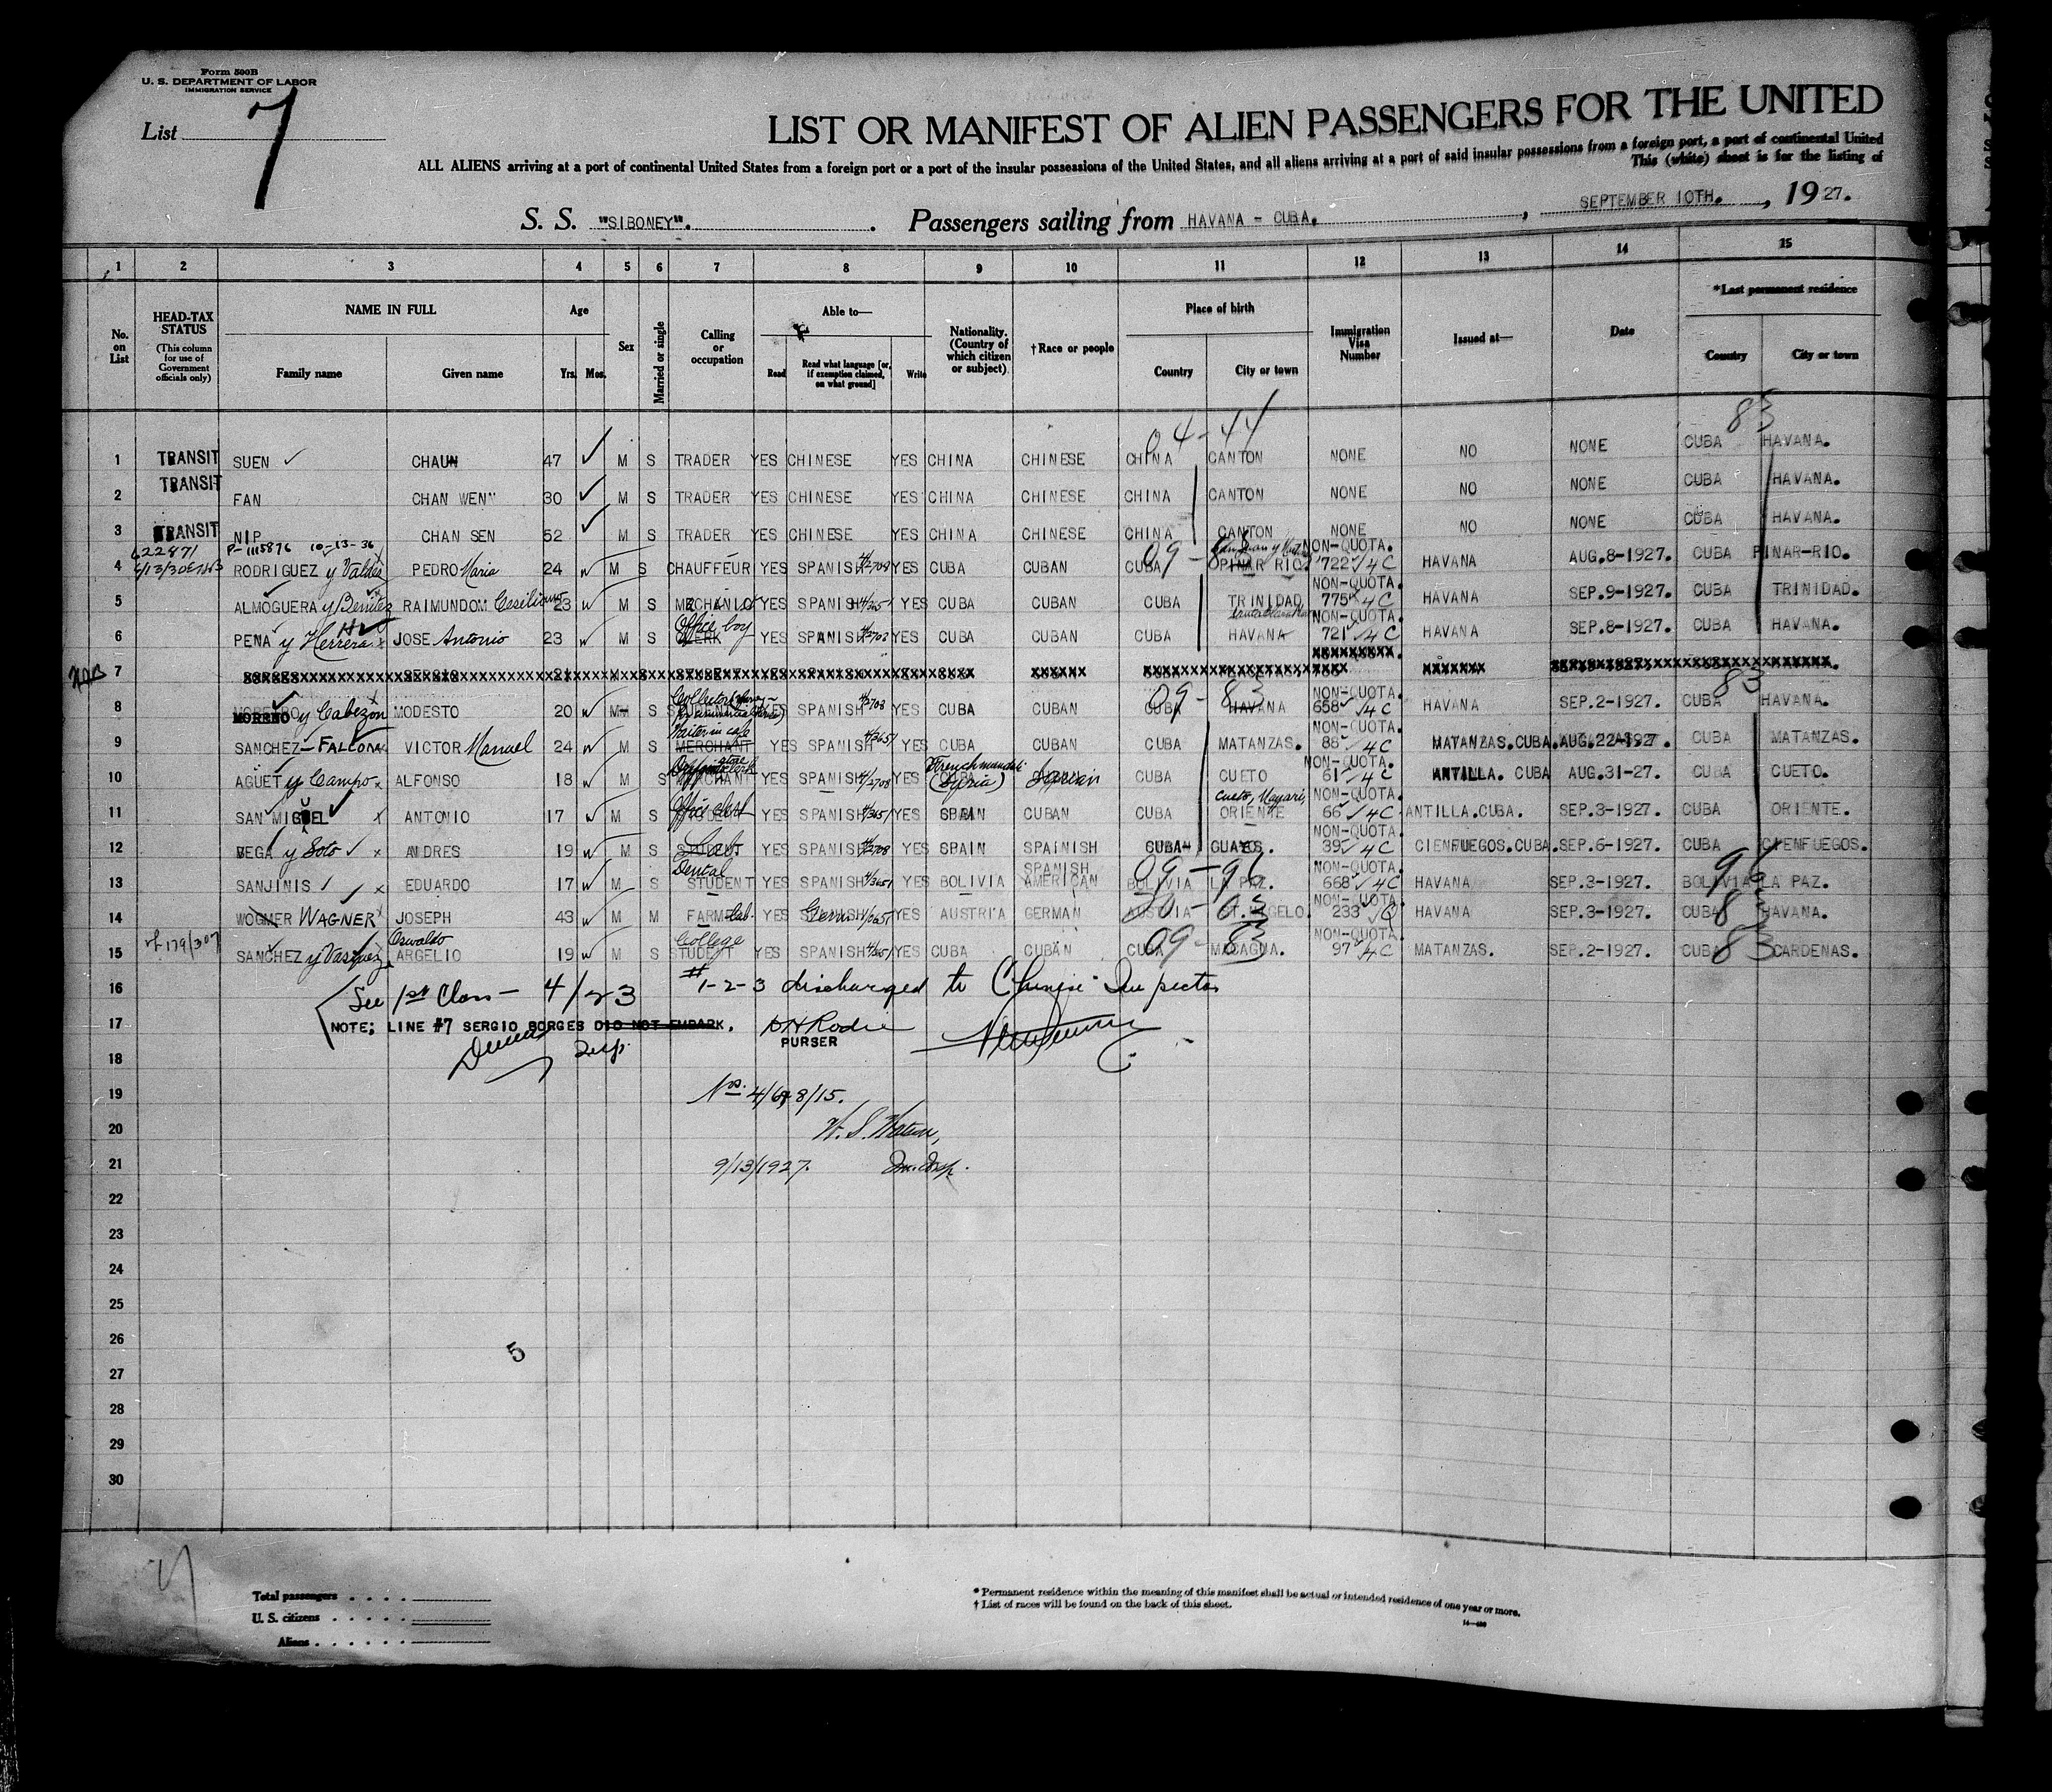 Form 500B
U. S. DEPARTMENT OF LABOR
IMMIGRATION SERVICE
List 7
LIST OR MANIFEST OF ALIEN PASSENGERS FOR THE UNITED
ALL ALIENS arriving at a port of continental United States from a foreign port or a port of the insular possessions of the United States, and all aliens arriving at a port of said insular possessions from a foreign port, a port of continental United
This (white) sheet is for the listing of
S. S. "SIBONEY". Passengers sailing from HAVANA - CUBA. , SEPTEMBER 10TH. , 1927.
1 2 3 4 5 6 7 8 9 10 11 12 13 14 15
No. on List HEAD-TAX STATUS (This column for use of Government officials only) NAME IN FULL Family name Given name Age Yrs. Mos. Sex Married or single Calling or occupation Able to— Read Read what language [or, if exemption claimed, on what ground] Write Nationality. (Country of which citizen or subject) † Race or people Place of birth Country City or town Immigration Visa Number Issued at— Date *Last permanent residence Country City or town
04-44 83
1 TRANSIT SUEN CHAUN 47 M S TRADER YES CHINESE YES CHINA CHINESE CHINA CANTON NONE NO NONE CUBA HAVANA.
2 TRANSIT FAN CHAN WENN 30 M S TRADER YES CHINESE YES CHINA CHINESE CHINA CANTON NONE NO NONE CUBA HAVANA.
3 TRANSIT NIP CHAN SEN 52 M S TRADER YES CHINESE YES CHINA CHINESE CHINA CANTON NONE NO NONE CUBA HAVANA.
622871 P-1115876 10-13-36
4 RODRIGUEZ y Valdes PEDRO Maria 24 w M S CHAUFFEUR YES SPANISH 4/2708 YES CUBA CUBAN CUBA 09-83 PINAR RIO. NON-QUOTA. 722 4C HAVANA AUG.8-1927. CUBA PINAR-RIO.
5 ALMOGUERA y Benitez RAIMUNDO M 23 w M S MECHANIC YES SPANISH 4/3651 YES CUBA CUBAN CUBA TRINIDAD NON-QUOTA. 775 4C HAVANA SEP.9-1927. CUBA TRINIDAD.
6 PENA y Herrera JOSE Antonio 23 w M S CLERK Office boy YES SPANISH 4/2708 YES CUBA CUBAN CUBA HAVANA NON-QUOTA. 721 4C HAVANA SEP.8-1927. CUBA HAVANA.
7
8 MORENO y Cabezon MODESTO 20 w M S STUDENT YES SPANISH 4/2708 YES CUBA CUBAN CUBA 09-83 HAVANA NON-QUOTA. 658 4C HAVANA SEP.2-1927. CUBA 83 HAVANA.
9 SANCHEZ-FALCON VICTOR Manuel 24 w M S MERCHANT Waiter in cafe YES SPANISH 4/3651 YES CUBA CUBAN CUBA MATANZAS. NON-QUOTA. 88 4C MATANZAS.CUBA. AUG.22-1927. CUBA MATANZAS.
10 AGUET y Campo ALFONSO 18 w M S MERCHANT YES SPANISH 4/2708 YES CUBA French mandate (Syria) Syrian CUBA CUETO NON-QUOTA. 61 4C ANTILLA. CUBA AUG.31-27. CUBA CUETO.
11 SAN MIGUEL ANTONIO 17 w M S Office clerk YES SPANISH 4/3651 YES SPAIN CUBAN CUBA Cueto, Mayari, ORIENTE NON-QUOTA. 66 4C ANTILLA.CUBA. SEP.3-1927. CUBA ORIENTE.
12 VEGA y Soto ANDRES 19 w M S STUDENT YES SPANISH 4/2708 YES SPAIN SPAINISH CUBA GUAYOS. NON-QUOTA. 39 4C CIENFUEGOS.CUBA. SEP.6-1927. CUBA CIENFUEGOS.
13 SANJINIS EDUARDO 17 w M S Dental STUDENT YES SPANISH 4/3651 YES BOLIVIA SPANISH AMERICAN BOLIVIA 09-96 LA PAZ. NON-QUOTA. 668 4C HAVANA SEP.3-1927. BOLIVIA 96 LA PAZ.
14 WOGMER WAGNER JOSEPH 43 w M M FARM Lab. YES German YES AUSTRIA GERMAN AUSTRIA ST. ANGELO. NON-QUOTA. 233 Q HAVANA SEP.3-1927. CUBA HAVANA.
15 SANCHEZ y Vasquez Oswaldo ARGELIO 19 w M S College STUDENT YES SPANISH 4/3651 YES CUBA CUBAN CUBA 09-83 MACAGUA. NON-QUOTA. 97 4C MATANZAS. SEP.2-1927. CUBA 83 CARDENAS.
16 See 1st Class - 4/23 #1-2-3 discharged to Chinese Inspector
17 NOTE; LINE #7 SERGIO BORGES DID NOT EMBARK.
PURSER
18
19 Nos. 4/6, 8/15.
20 W. S. Watson,
21 9/13/1927. Im. Insp.
22
23
24
25
26
5
27
28
29
30
Total passengers
U. S. citizens
Aliens
* Permanent residence within the meaning of this manifest shall be actual or intended residence of one year or more.
† List of races will be found on the back of this sheet.